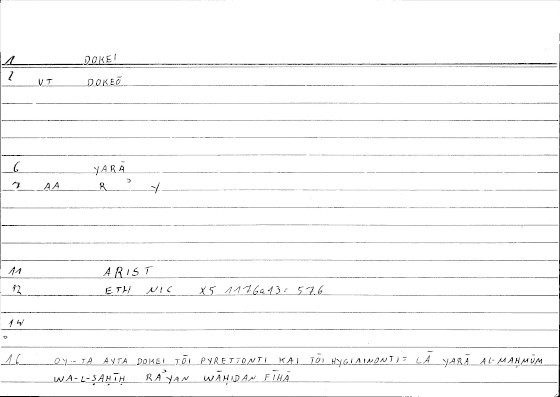 1 DOKEI
2 VT DOKEŌ
6 YARĀ
7 AA R ʾ Y
11 ARIST
12 ETH NIC X5 1176a13 = 576
14
16 OY-TA AYTA DOKEI TŌI PYRETTONTI KAI TŌI HYGIAINONTI = LĀ YARĀ Al-MAḤMŪM
WA-L-ṢAḤĪḤ RAʾYAN WĀḤIDAN FĪHĀ